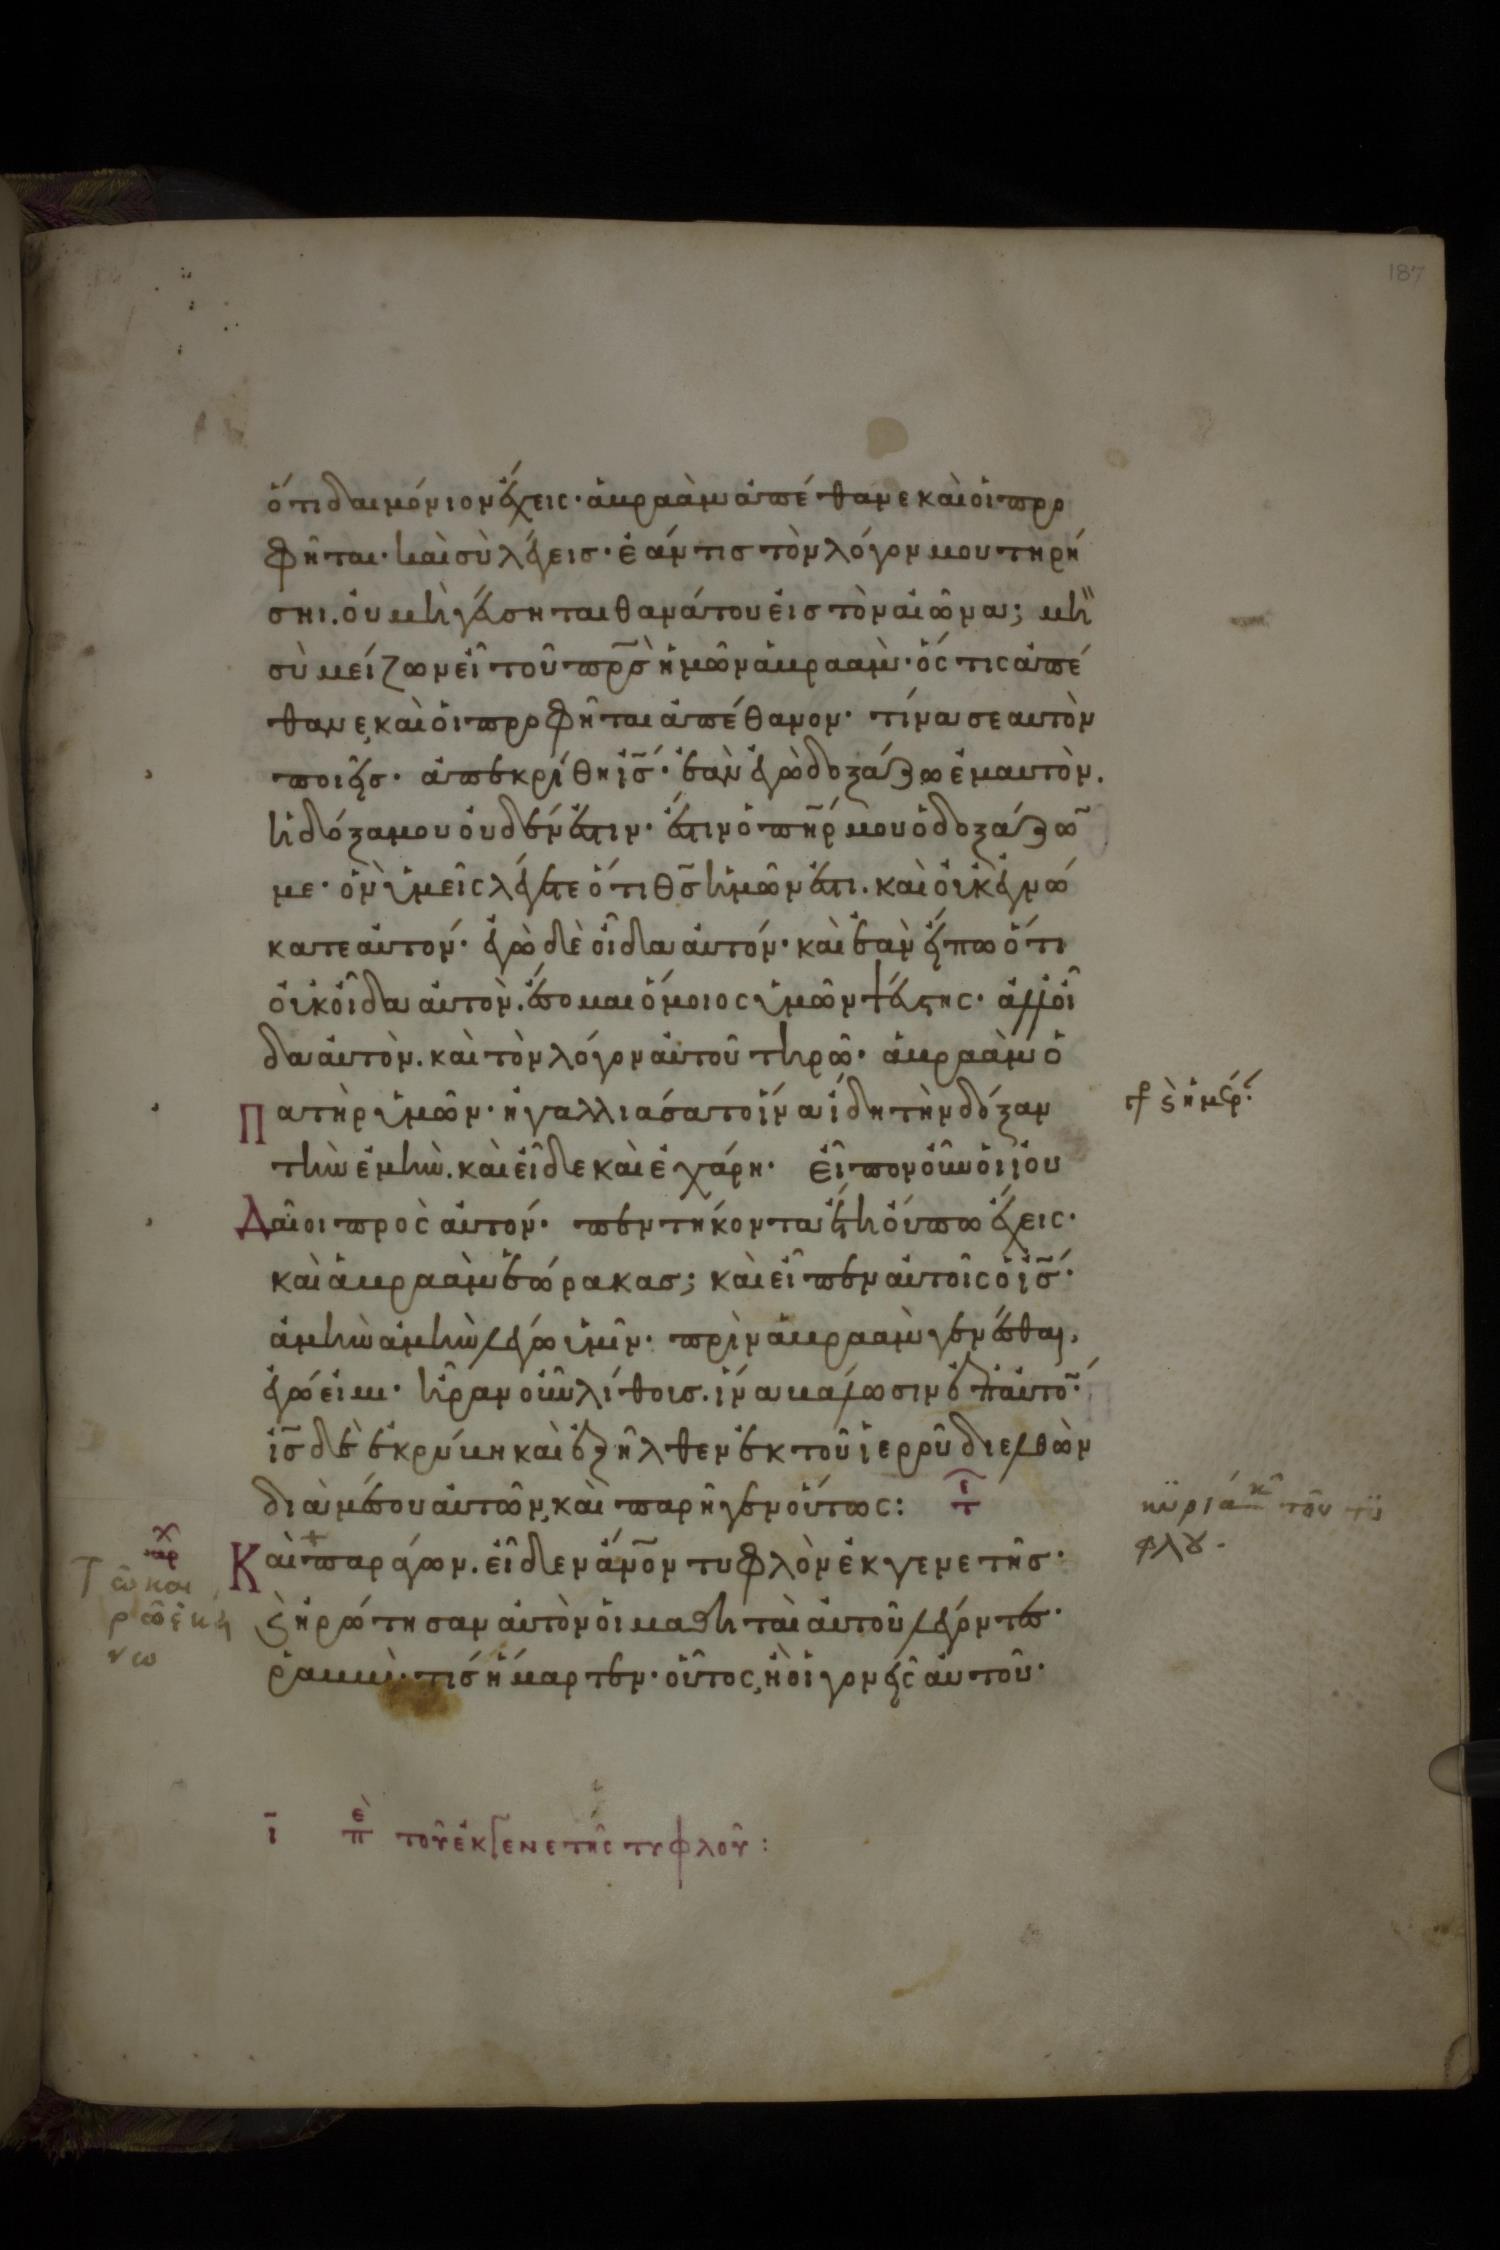 187
ὅτι δαιμόνιον ἔχεις· ἀβραὰμ ἀπέθανε καὶ οἱ προ
φῆται· καὶ σὺ λέγεις· ἐάν τις τὸν λόγον μου τηρή
σηι. οὐ μὴ γεύσηται θανάτου εἰς τὸν αἰῶνα; μὴ
σὺ μείζων εἶ τοῦ πρ̅ς ἡμῶν ἀβραάμ· ὅς τις ἀπέ
θανε, καὶ οἱ προφῆται ἀπέθανον· τίνα σεαυτὸν
ποιεῖς· ἀπεκρίθη ἰ̅ς· ἐὰν ἐγὼ δοξάζω ἐμαυτὸν.
ἡ δόξα μου οὐδέν ἐστιν· ἔστιν ὁ π̅ηρ μου ὁ δοξάζω̅
με· ὃν ὑμεῖς λέγετε ὅτι θ̅ς ἡμῶν ἐστι. καὶ οὐκ ἐγνώ
κατε αὐτόν· ἐγὼ δὲ οἶδα αὐτόν· καὶ ἐὰν εἴπω ὅτι
οὐκ οἶδα αὐτὸν. ἔσομαι ὅμοιος ὑμῶν ψεύστης· ἀλλ οἶ
δα αὐτὸν. καὶ τὸν λόγον αὐτοῦ τηρῶ· ἀβραὰμ ὁ
Πατὴρ ὑμῶν· ἠγαλλιάσατο ἵνα ἴδη τὴν δόξαν
τὴν ἐμὴν. καὶ εἶδε καὶ ἐχάρη· εἶπον οὖν οἱ ἰου
Δαῖοι πρὸς αὐτόν· πεντήκοντα ἔτη οὔπω ἔχεις·
καὶ ἀβραὰμ ἑώρακας; καὶ εἶπεν αὐτοῖς ὁ ἰ̅ς·
ἀμὴν ἀμὴν λέγω ὑμῖν· πρὶν ἀβραὰμ γενέσθαι,
ἐγώ εἰμι· ἦραν οὖν λίθους. ἵνα βάλωσιν ἐπ αὐτο̅·
ἰ̅ς δὲ ἐκρύβη καὶ ἐξῆλθεν ἐκ τοῦ ἱεροῦ διελθὼν
διὰ μέσου αὐτῶν, καὶ παρῆγεν οὕτως:
Καὶ παράγων. εἶδεν ἄν̅ον τυφλὸν ἐκ γενετῆς·
ϗ ἠρώτησαν αὐτὸν οἱ μαθηταὶ αὐτοῦ λέγοντες·
ῥαββὶ· τίς ἥμαρτεν· οὗτος, ἢ οἱ γονεῖς αὐτοῦ·
κϋριακ τοῦ τϋ
φλȣ.
Τῶ και
ρῶ ἐκεί
νω
ι̅ πε τοῦ ἐκ γενετῆς τυφλοῦ: